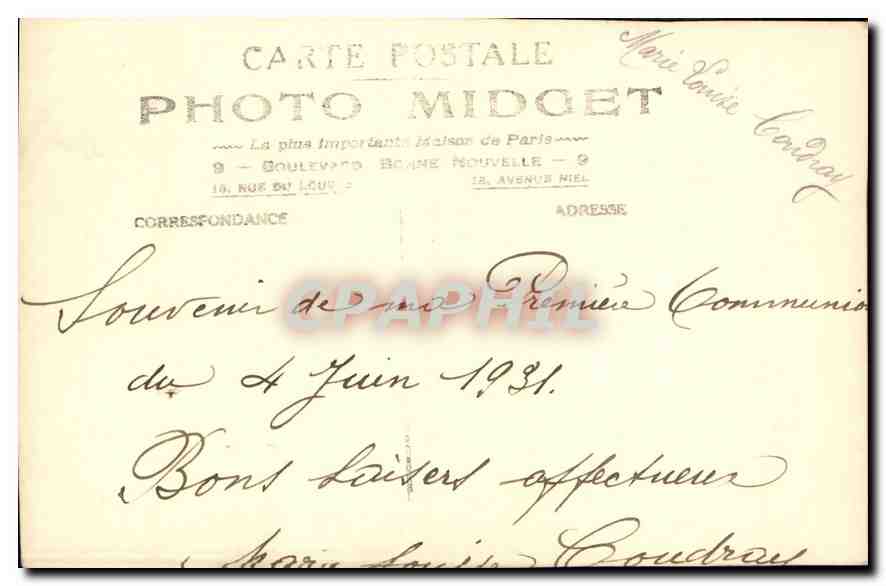 CARTE POSTALE
PHOTO MIDGET
La plus importante Maison de Paris
9 - BOULEVARD BONNE NOUVELLE - 9
18, RUE DU LOUVRE
18, AVENUE NIEL
CORRESPONDANCE
ADRESSE
Marie Louise Coudray
Souvenir de ma Première Communion
du 4 Juin 1931.
Bons baisers affectueux
Marie Louise Coudray
CPAPHIL